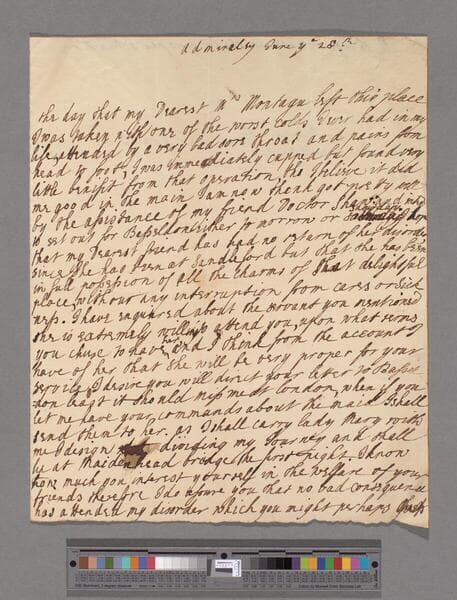 Admiralty June ye 28th
the day that my Dearest Mrs Montagu left this place
I was taken with one of the worst Colds I ever had in my
life, attended by a very bad sore throat and pains from
head to foot, I was immediately cupped but found very
little benifit from that operation, tho I believe it did
me good in the main I am now thank god well
by the assistance of my friend Doctor Shaw
to set out for Besselon either to morrow or
that my Dearest friend has had no return of her disorder
since she has been at Sandleford but that she has been
in full possession of all the Charms of that delightful
place without any interruption from cares or sick
ness. I have enquired about the servant you mentioned
she is extremely willing to attend you, upon what terms
you chuse to have her, and I think from the account I
have of her that she will be very proper for your
service, I desire you will direct your letter to
least it should miss me at london, when if you
let me have your commands about the maid I shall
send them to her, as I shall carry lady Mary with
me I design dividing my Journey and shall
lie at Maidenhead bridge the first night, I know
how much you interest yourself in the welfare of your
friends therefore I do assure you that no bad consequence
has attended my disorder which you might perhaps